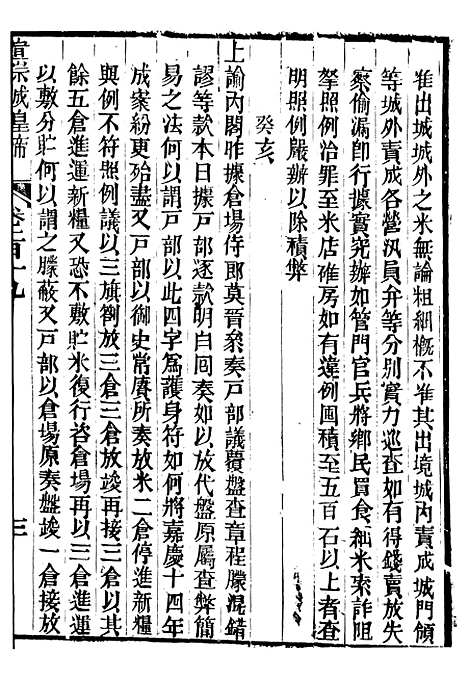 准出城城外之米無論粗細概不准其出境城內責成城門領
等城外責成各營汛員弁等分別實力巡查如有得錢賣放失
察偷漏即行據實究辦如管門官兵將鄉民買食細米索詐阻
拏照例治罪至米店碓房如有違例囤積至五百石以上者查
明照例嚴辦以除積弊
癸亥
上諭內閣昨據倉場侍郎莫晉彖奏戸部議覆盤查章程朦混錯
謬等款本日據戸部逐款明白回奏如以放代盤原屬查弊簡
易之法何以謂戸部以此四字爲護身符如何將嘉慶十四年
成案紛更殆盡又戸部以御史常賡所奏放米二倉停進新糧
與例不符照例議以三旗劄放三倉三倉放竣再接三倉以其
餘五倉進運新糧又恐不敷貯米復行咨倉場再以三倉進運
以敷分貯何以謂之朦蔽又戸部以倉場原奏盤竣一倉接放
宣宗成皇帝
卷二百十九
三